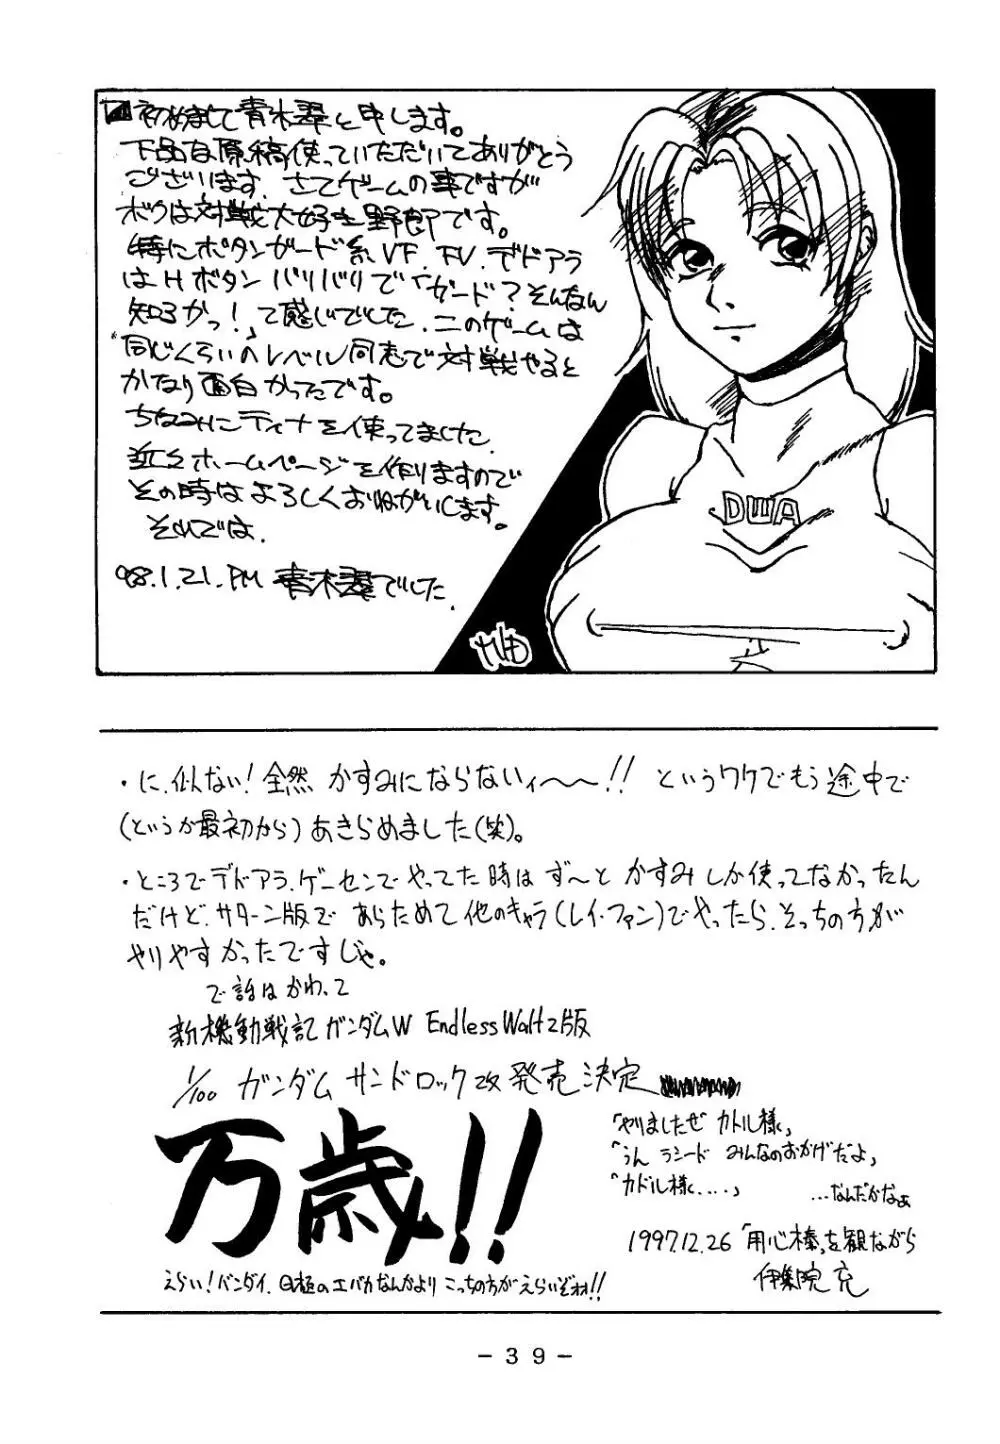 初めまして青木翠と申します。
下品な原稿使っていただいてありがとう
ございます。さてゲームの事ですが
ボクは対戦大好き野郎です。
特にボタンガード系VF.FV.デドアラ
はHボタンバリバリで「ガード?そんなん
知るかっ!」て感じでした。このゲームは
同じくらいのレベル同志で対戦やると
かなり面白かったです。
ちなみにティナを使ってました。
近々ホームページを作りますので
その時はよろしくおねがいします。
それでは.
'98.1.21.PM 青木翠でした.
DWA
・に、似ない!全然かすみにならないィ〜〜!!というワケでもう途中で
(というか最初から)あきらめました(笑)。
・ところでデドアラ、ゲーセンでやってた時はず〜とかすみしか使ってなかったん
だけど、サターン版であらためて他のキャラ(レイ・ファン)でやったら、そっちの方が
やりやすかったですじゃ。
で話はかわって
新機動戦記ガンダムW Endless Waltz版
1/100 ガンダムサンドロック改発売決定
万歳!!
「やりましたぜカトル様」
「うんラシードみんなのおかげだよ」
「カトル様....」 ...なんだかなぁ
1997.12.26「用心棒」を観ながら
伊集院 充
えらい!バンダイ、のエバカなんかよりこっちの方がえらいぞォ!!
- 39 -